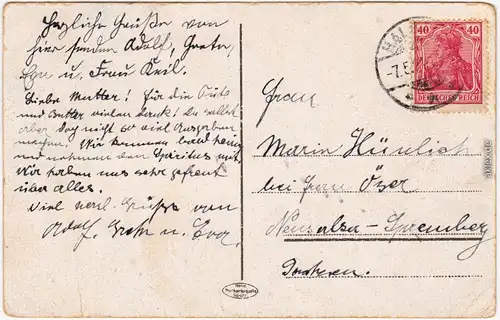 Herzliche Grüße von
hier senden Adolf, Greta,
Eva u. Frau Keil.
Liebe Mutter! Für die
und Butter vielen Dank! Du sollst
aber doch nicht so viel Ausgaben
machen! Wir kommen bald heim
und nehmen den Spiritus mit.
Wir haben uns sehr gefreut
über alles.
Viel herzl. Grüße von
Adolf, Greta u. Eva.
40 40
DEUTSCHES REICH
-7.5
Frau
Marie
bei Frau
Neusalza-Spremberg
Sachsen.